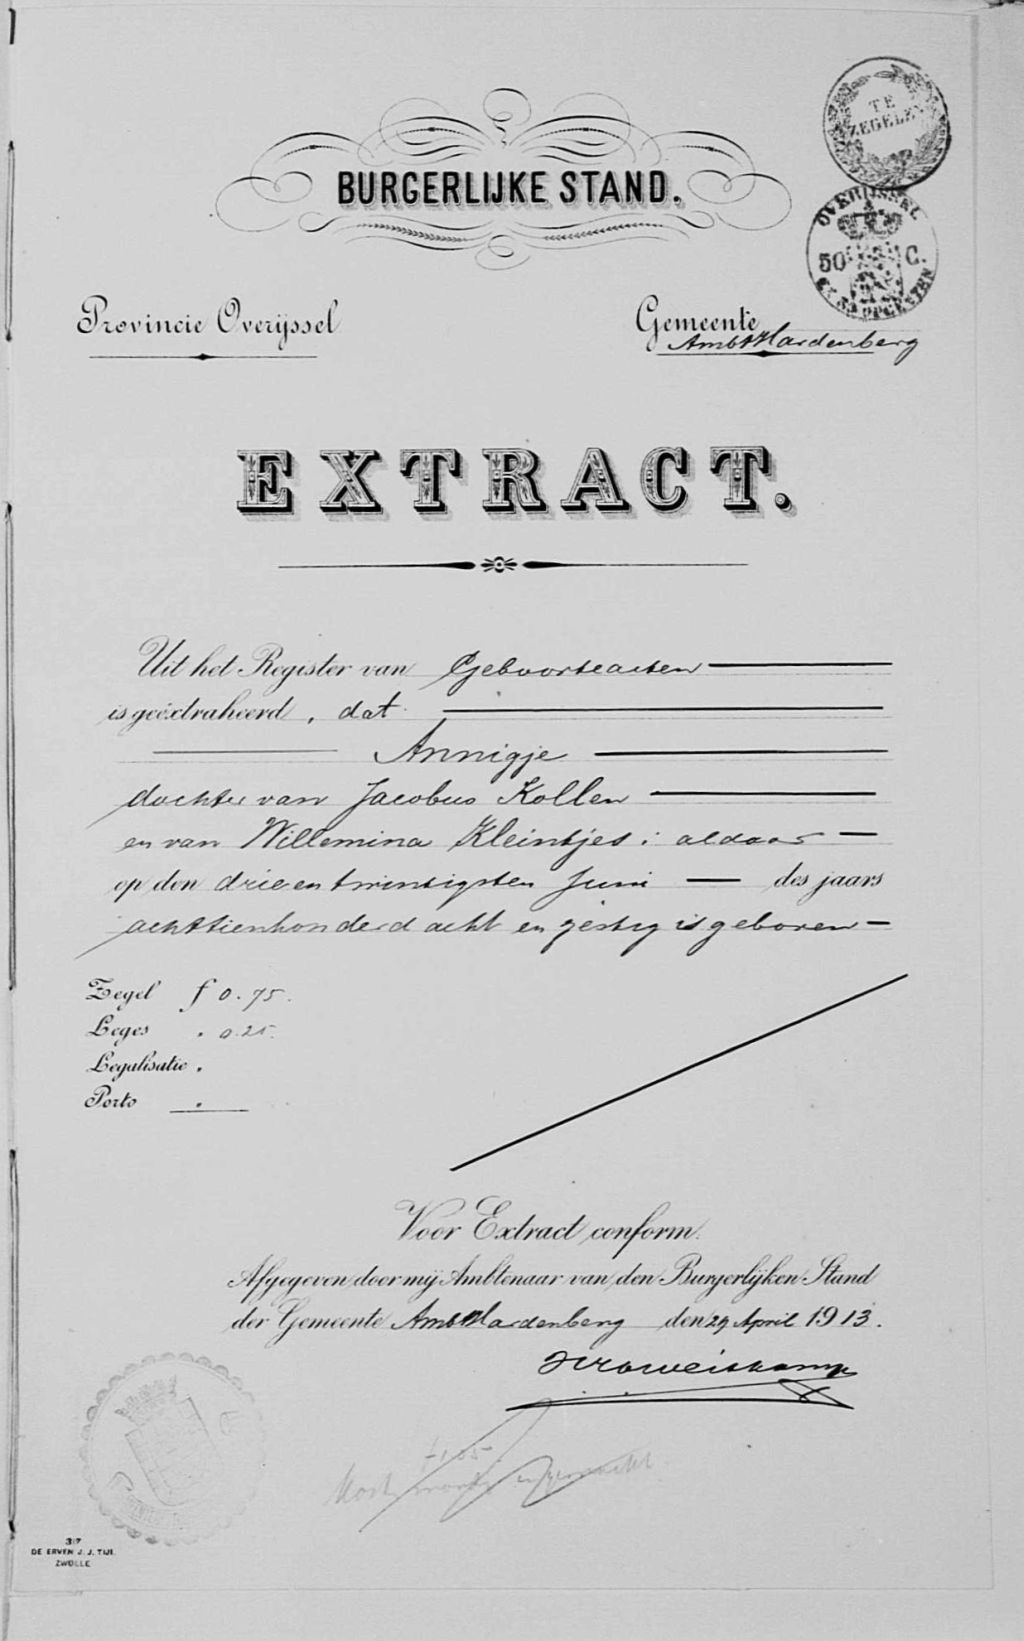 TE
ZEGELEN
OVERIJSSEL
50 C.
BURGERLIJKE STAND.
Provincie Overijssel
Gemeente
Ambt Hardenberg
EXTRACT.
Uit het Register van Geboorteacten
is geëxtraheerd, dat
Annigje
dochter van Jacobus Kollen
en van Willemina Kleintjes: aldaar
op den drieentwintigsten Juni des jaars
achttienhonderd acht en zestig is geboren
Zegel f 0.75.
Leges " 0.25.
Legalisatie "
Porto "
Voor Extract conform.
Afgegeven door mij Ambtenaar van den Burgerlijken Stand
der Gemeente Ambt Hardenberg den 29 April 1913.
317
DE ERVEN J. J. TIJL
ZWOLLE